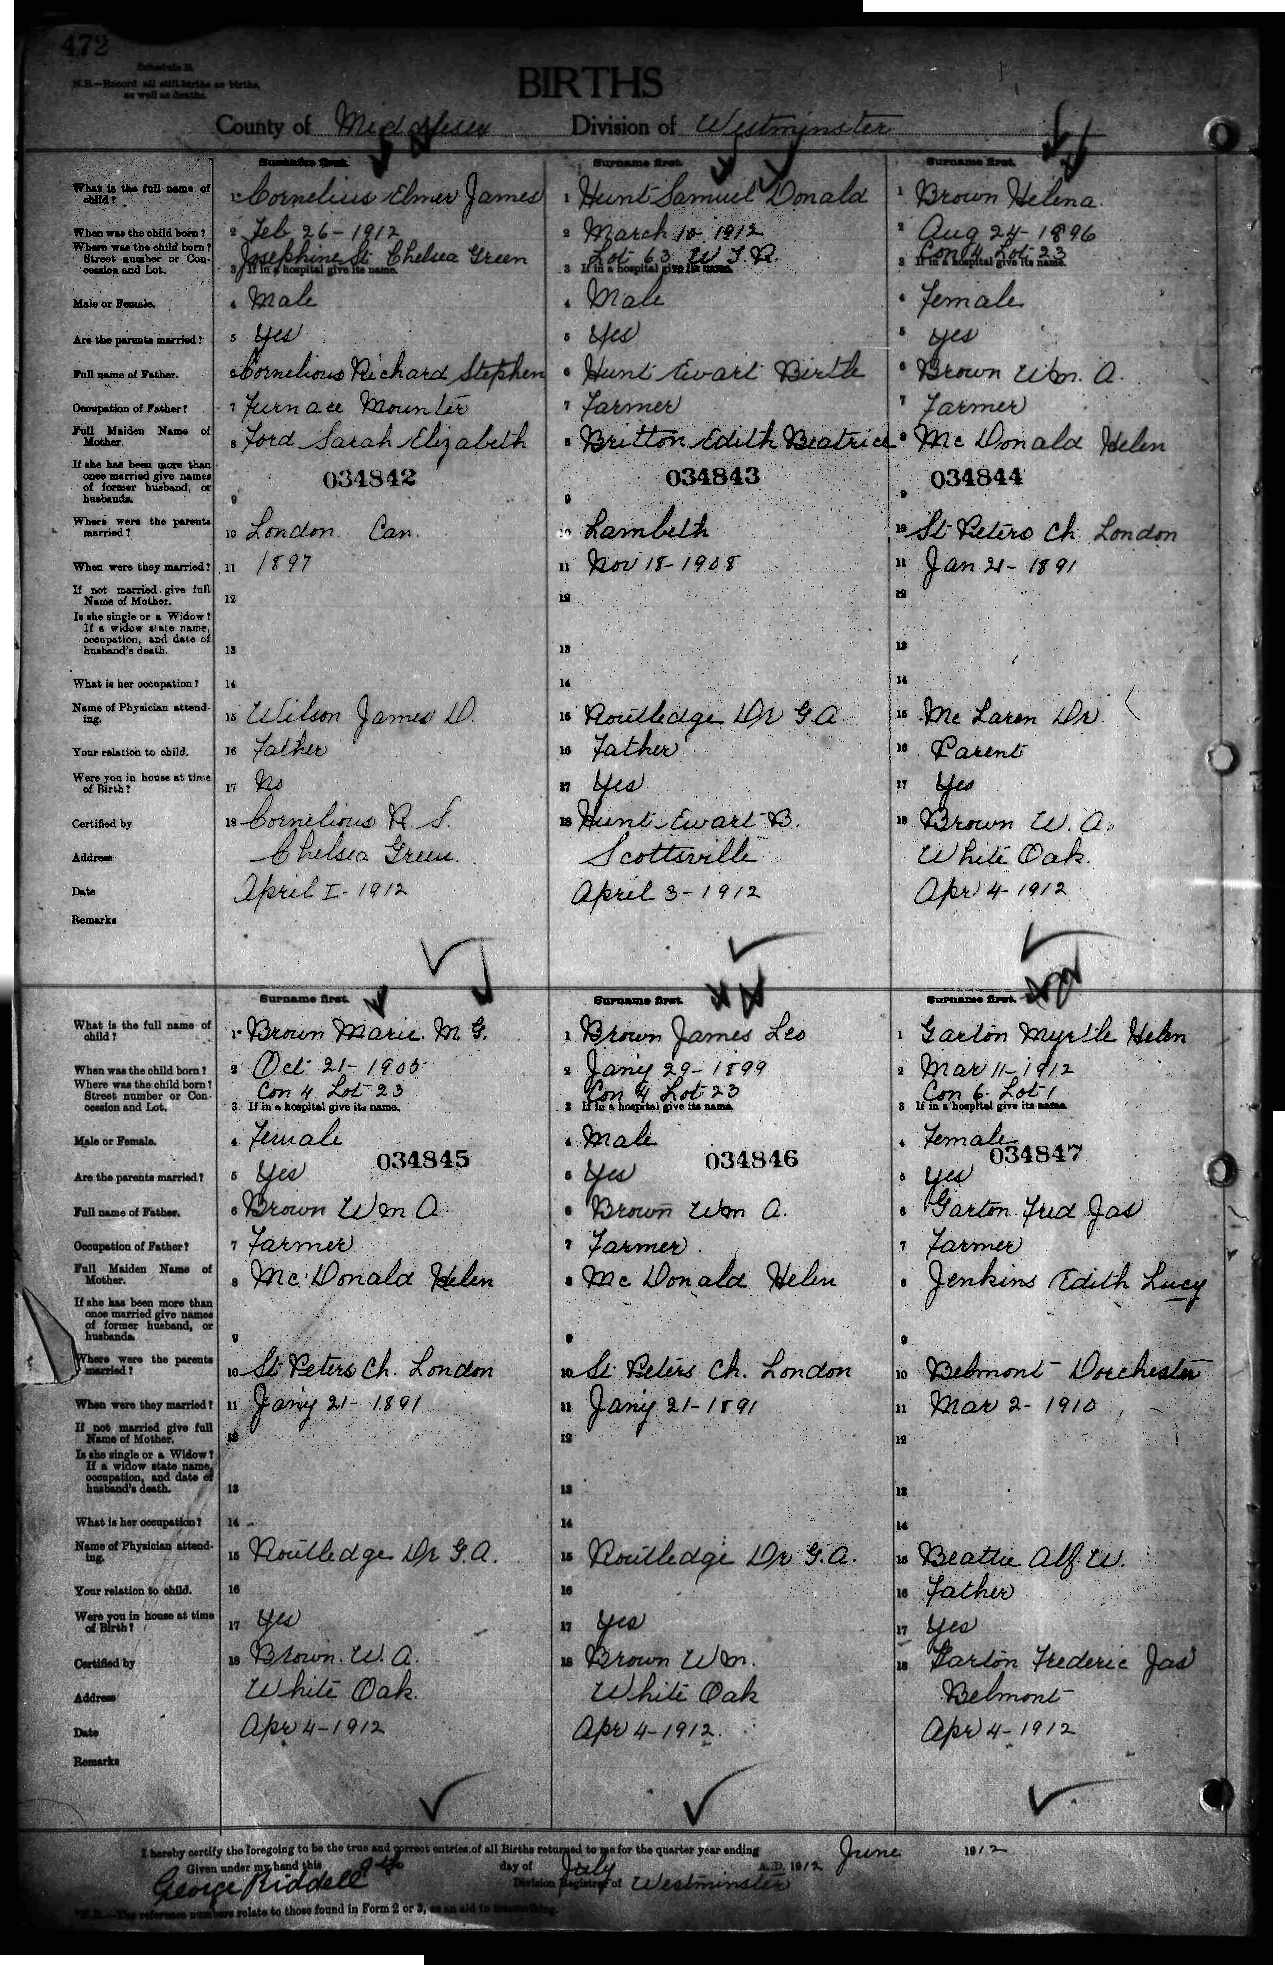 472
Schedule B.
N.B.—Record all still births as births,
as well as deaths.
BIRTHS
County of Middlesex Division of Westminster
Surname first. Surname first. Surname first.
What is the full name of child? 1 Cornelius Elmer James 1 Hunt Samuel Donald 1 Brown Helena
When was the child born? 2 Feb 26-1912 2 March 10 1912 2 Aug 24-1896
Where was the child born? Street number or Concession and Lot. Josephine St Chelsea Green Lot 63 W T. R. Con 4 Lot 23
3 If in a hospital give its name. 3 If in a hospital give its name. 3 If in a hospital give its name.
Male or Female. 4 Male 4 Male 4 Female
Are the parents married? 5 Yes 5 Yes 5 Yes
Full name of Father. 6 Cornelious Richard Stephen 6 Hunt Ewart Birtle 6 Brown Wm. A.
Occupation of Father? 7 Furnace Mounter 7 Farmer 7 Farmer
Full Maiden Name of Mother. 8 Ford Sarah Elizabeth 8 Britton Edith Beatrice 8 Mc Donald Helen
If she has been more than once married give names of former husband, or husbands. 9 034842 9 034843 9 034844
Where were the parents married? 10 London Can. 10 Lambeth 10 St Peters Ch London
When were they married? 11 1897 11 Nov 18-1908 11 Jan 21-1891
If not married give full Name of Mother. 12 12 12
Is she single or a Widow? If a widow state name, occupation, and date of husband's death. 13 13 13
What is her occupation? 14 14 14
Name of Physician attending. 15 Wilson James D. 15 Routledge Dr G.A. 15 Mc Laren Dr.
Your relation to child. 16 Father 16 Father 16 Parent
Were you in house at time of Birth? 17 No 17 Yes 17 Yes
Certified by 18 Cornelious R S. 18 Hunt Ewart B. 18 Brown W. A.
Address Chelsea Green. Scottsville White Oak.
Date April 1-1912 April 3-1912 Apr 4-1912
Remarks
Surname first. Surname first. Surname first.
What is the full name of child? 1 Brown Marie. M G. 1 Brown James Leo 1 Garton Myrtle Helen
When was the child born? 2 Oct 21-1905 2 Jan'y 29-1899 2 Mar 11-1912
Where was the child born? Street number or Concession and Lot. Con 4 Lot 23 Con 4 Lot 23 Con 6 Lot 1
3 If in a hospital give its name. 3 If in a hospital give its name. 3 If in a hospital give its name.
Male or Female. 4 Female 4 Male 4 Female
034845 034846 034847
Are the parents married? 5 Yes 5 Yes 5 Yes
Full name of Father. 6 Brown Wm A 6 Brown Wm A. 6 Garton Fred Jas
Occupation of Father? 7 Farmer 7 Farmer. 7 Farmer
Full Maiden Name of Mother. 8 Mc Donald Helen 8 Mc Donald Helen 8 Jenkins Edith Lucy
If she has been more than once married give names of former husband, or husbands. 9 9 9
Where were the parents married? 10 St Peters Ch. London 10 St Peters Ch. London 10 Belmont Dorchester
When were they married? 11 Jan'y 21-1891 11 Jan'y 21-1891 11 Mar 2-1910
If not married give full Name of Mother. 12 12 12
Is she single or a Widow? If a widow state name, occupation, and date of husband's death. 13 13 13
What is her occupation? 14 14 14
Name of Physician attending. 15 Routledge Dr G.A. 15 Routledge Dr G.A. 15 Beattie Alf. W.
Your relation to child. 16 16 16 Father
Were you in house at time of Birth? 17 Yes 17 Yes 17 Yes
Certified by 18 Brown. W. A. 18 Brown Wm. 18 Garton Frederic Jas
Address White Oak. White Oak Belmont
Date Apr 4-1912 Apr 4-1912. Apr 4-1912
Remarks
I hereby certify the foregoing to be the true and correct entries of all Births returned to me for the quarter year ending June 1912
Given under my hand this 9th day of July A.D. 1912
George Riddell Division Registrar of Westminster
N.B.—The reference numbers relate to those found in Form 2 or 3, as an aid to